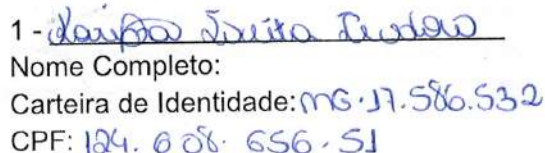 1 -
Nome Completo:
Carteira de Identidade: MG.17.586.532
CPF: 124.608.656.51